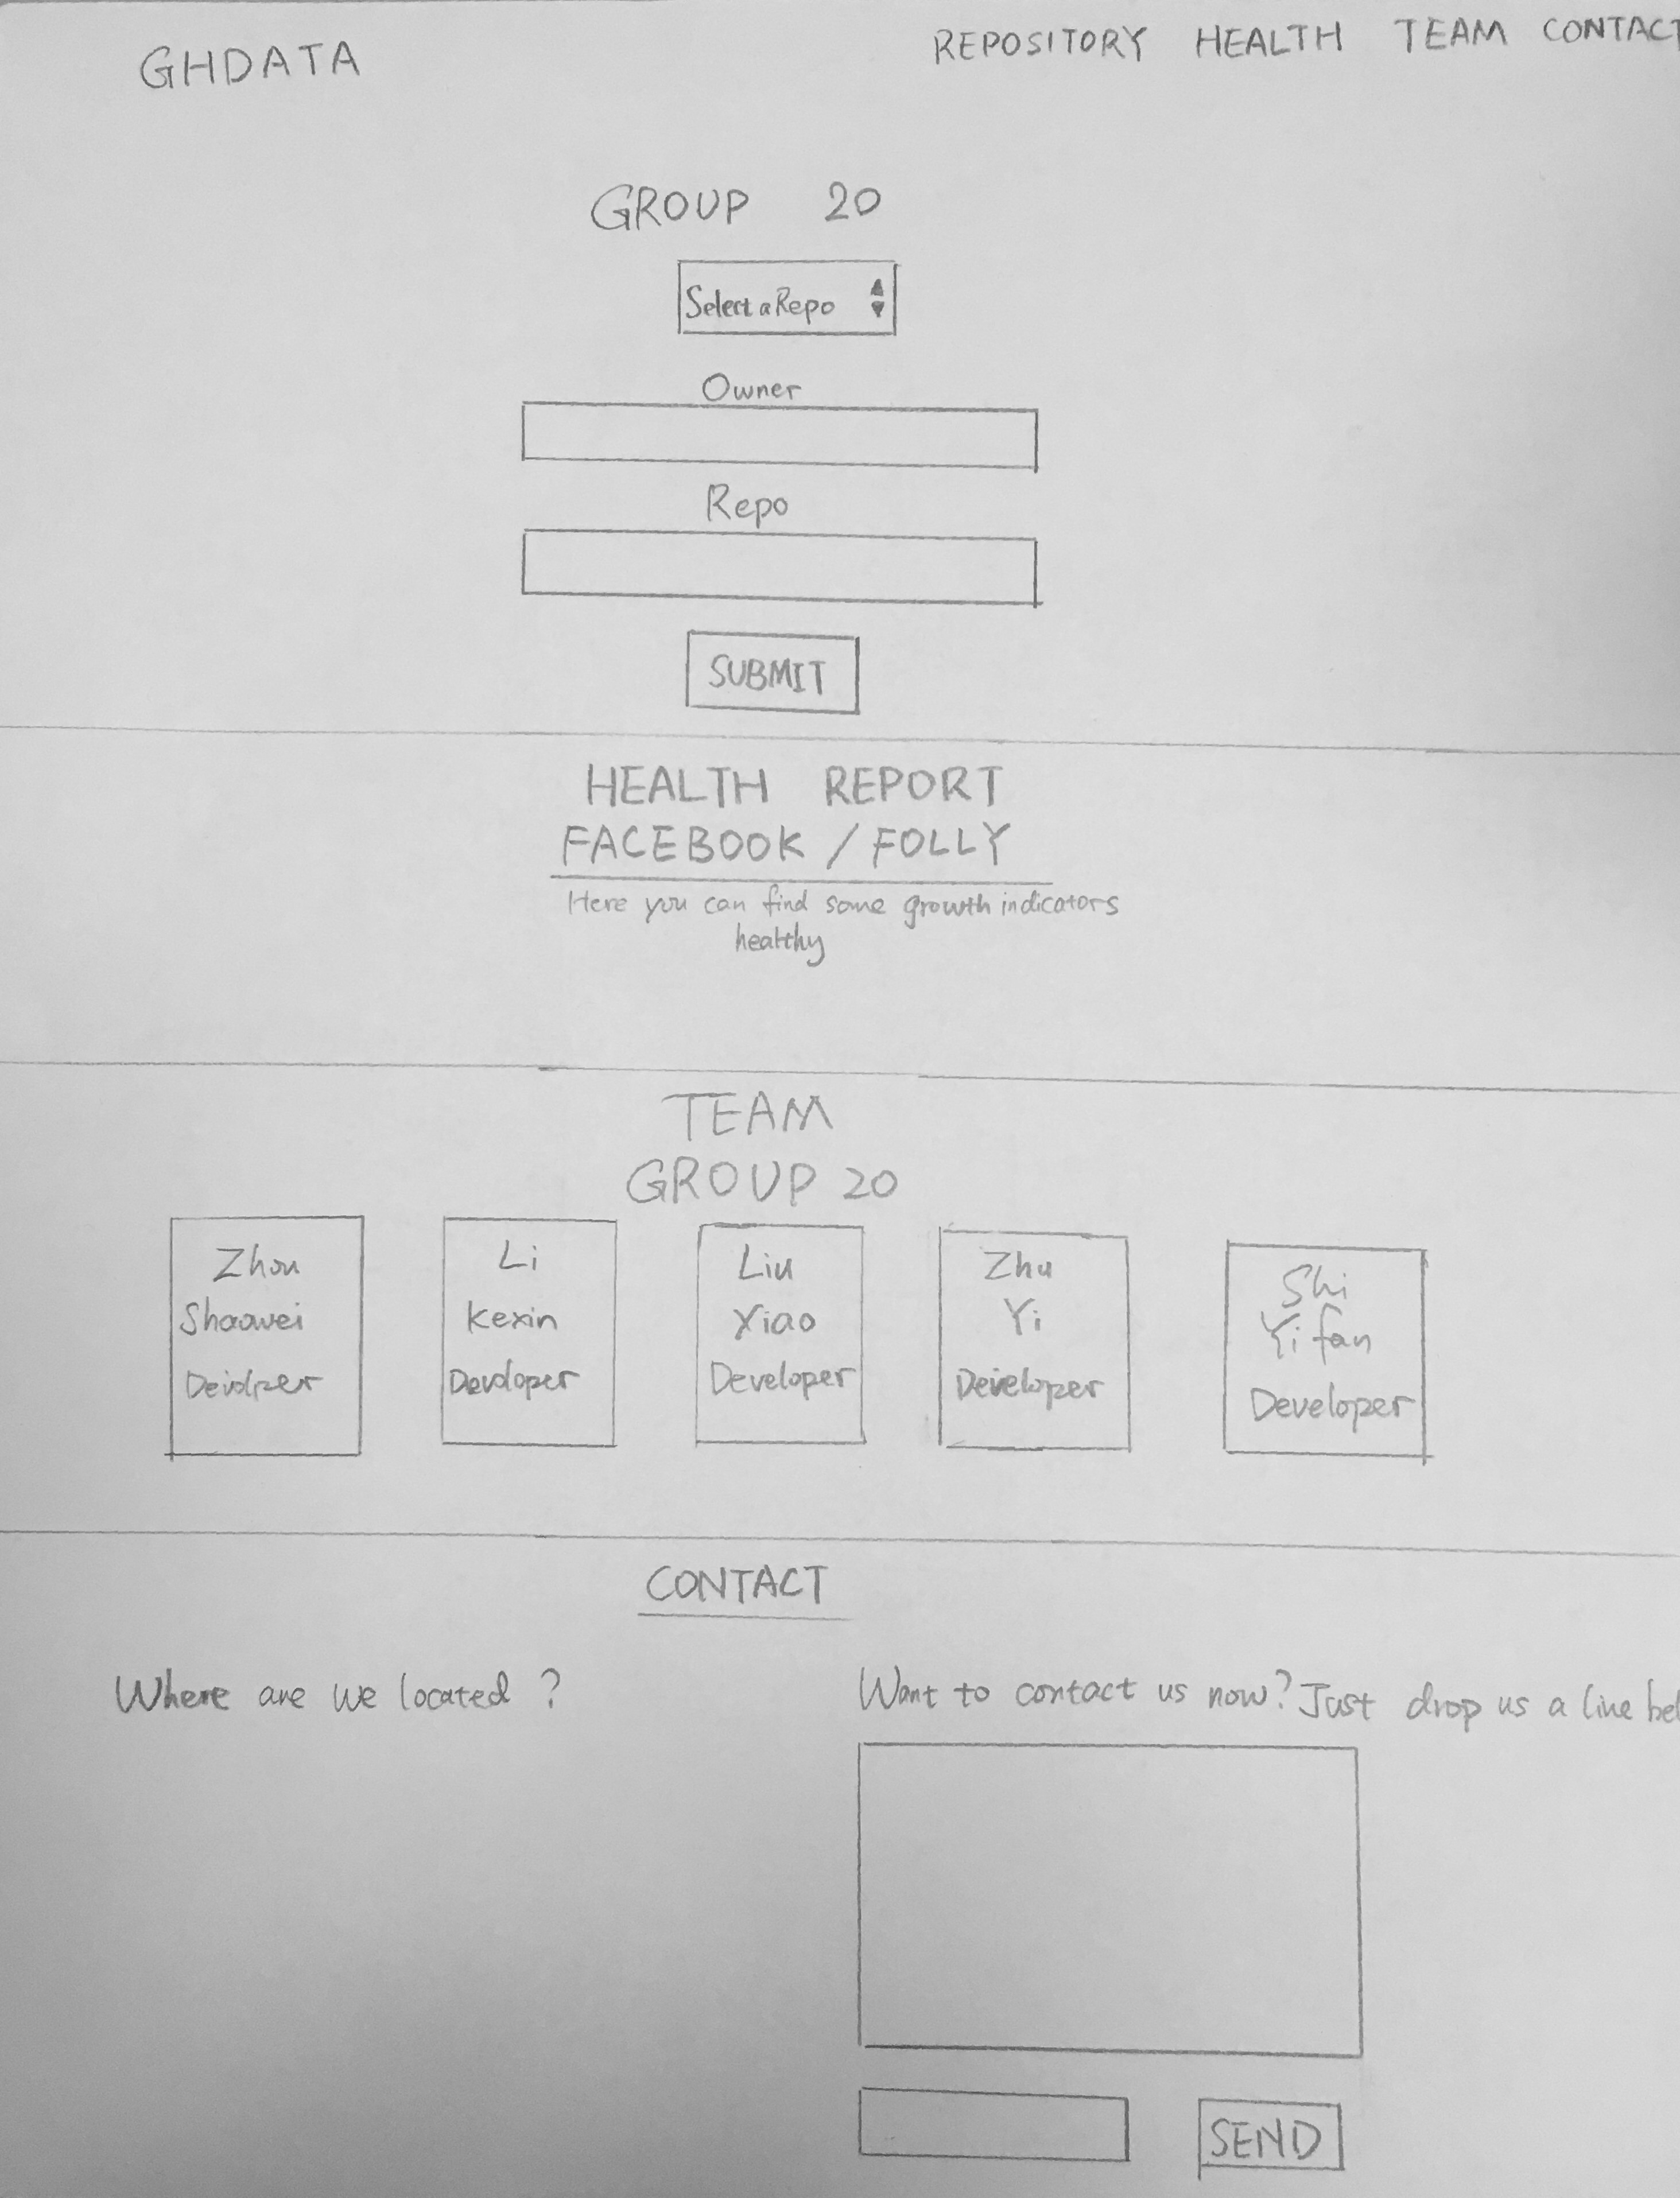 GHDATA REPOSITORY HEALTH TEAM CONTACT
GROUP 20
Select a Repo
Owner
Repo
SUBMIT
HEALTH REPORT
FACEBOOK / FOLLY
Here you can find some growth indicators
healthy
TEAM
GROUP 20
Zhou
Shaowei
Developer
Li
Kexin
Developer
Liu
Xiao
Developer
Zhu
Yi
Developer
Shi
Yifan
Developer
CONTACT
Where are we located ?
Want to contact us now? Just drop us a line bel
SEND